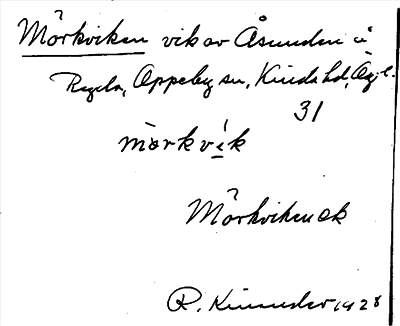 Mörkviken vik av Åsunden i
Oppeby sn, Kinda hd, Ög l.
31
mörkvik
Mörkviken ek
R. Kinander 1928